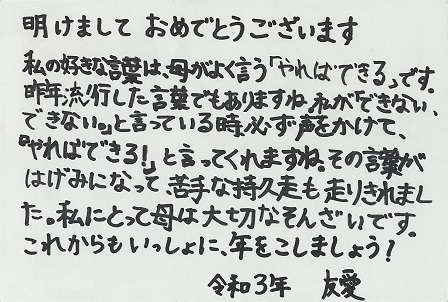 明けまして おめでとうございます
私の好きな言葉は、母がよく言う「やればできる」です。
昨年流行した言葉でもありますね。私が「できない、
できない。」と言っている時、必ず声をかけて、
『やればできる!』と言ってくれますね。その言葉が
はげみになって、苦手な持久走も走りきれまし
た。私にとって母は大切なそんざいです。
これからもいっしょに、年をこしましょう!
令和3年 友愛